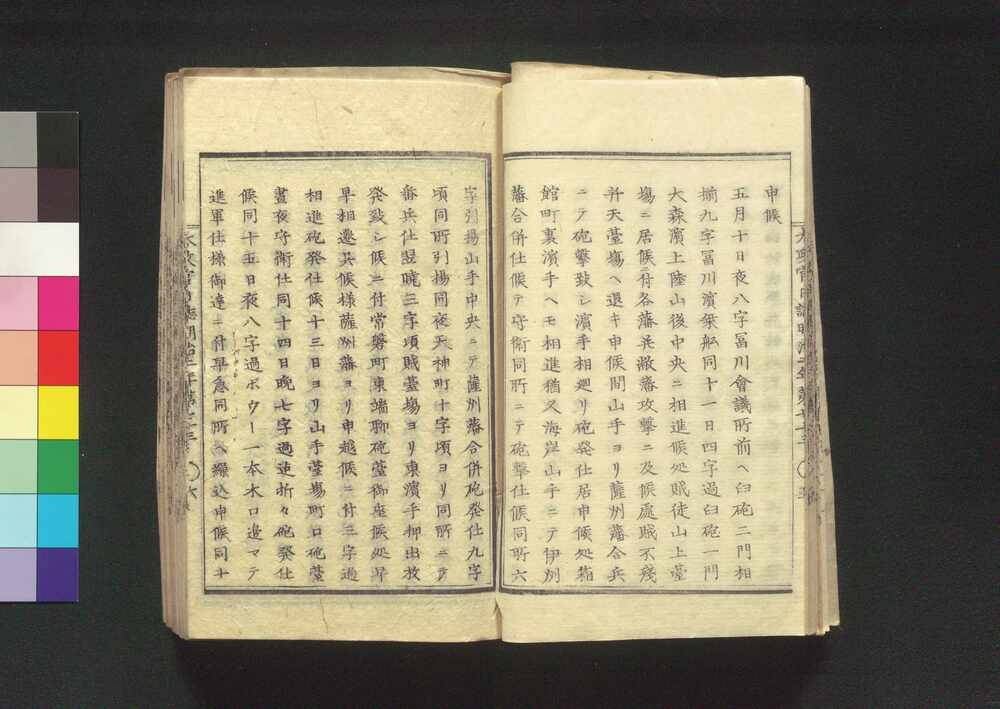 申候
五月十日夜八字冨川會議所前ヘ臼砲二門相
揃九字冨川濱架舩同十一日四字過臼砲一門
大森濱上陸山後中央ニ相進候処賊徒山上臺
塲ニ居候ニ付各藩兵散藩攻撃ニ及候處賊不殘
弁天臺塲ヘ退キ申候間山手ヨリ薩州藩合兵
ニテ砲撃致シ濱手相廻リ砲発仕居申候処箱
館町裏濱手ヘモ相進猶又海岸山手ニテ伊州
藩合併仕候テ守衛同所ニテ砲撃仕候同所六
字引揚山手中央ニテ薩州藩合併砲発仕九字
頃同所引揚同夜天神町十字頃ヨリ同所ニテ
番兵仕翌曉三字頃賊臺塲ヨリ東濱手押出放
発致シ候ニ付常磐町東端聊砲臺御座候処早
早相邀其候様薩州藩ヨリ申越候ニ付三字過
相進砲発仕候十三日ヨリ山手臺塲町口砲臺
晝夜守衛仕同十四日晩七字過迄折々砲発仕
候同十五日夜八字過ボウー一本木口邉マテ
進軍仕様御達ニ付早急同所ヘ繰込申候同十
太政官日誌明治二年第七十三
太政官日誌明治二年第七十三 六